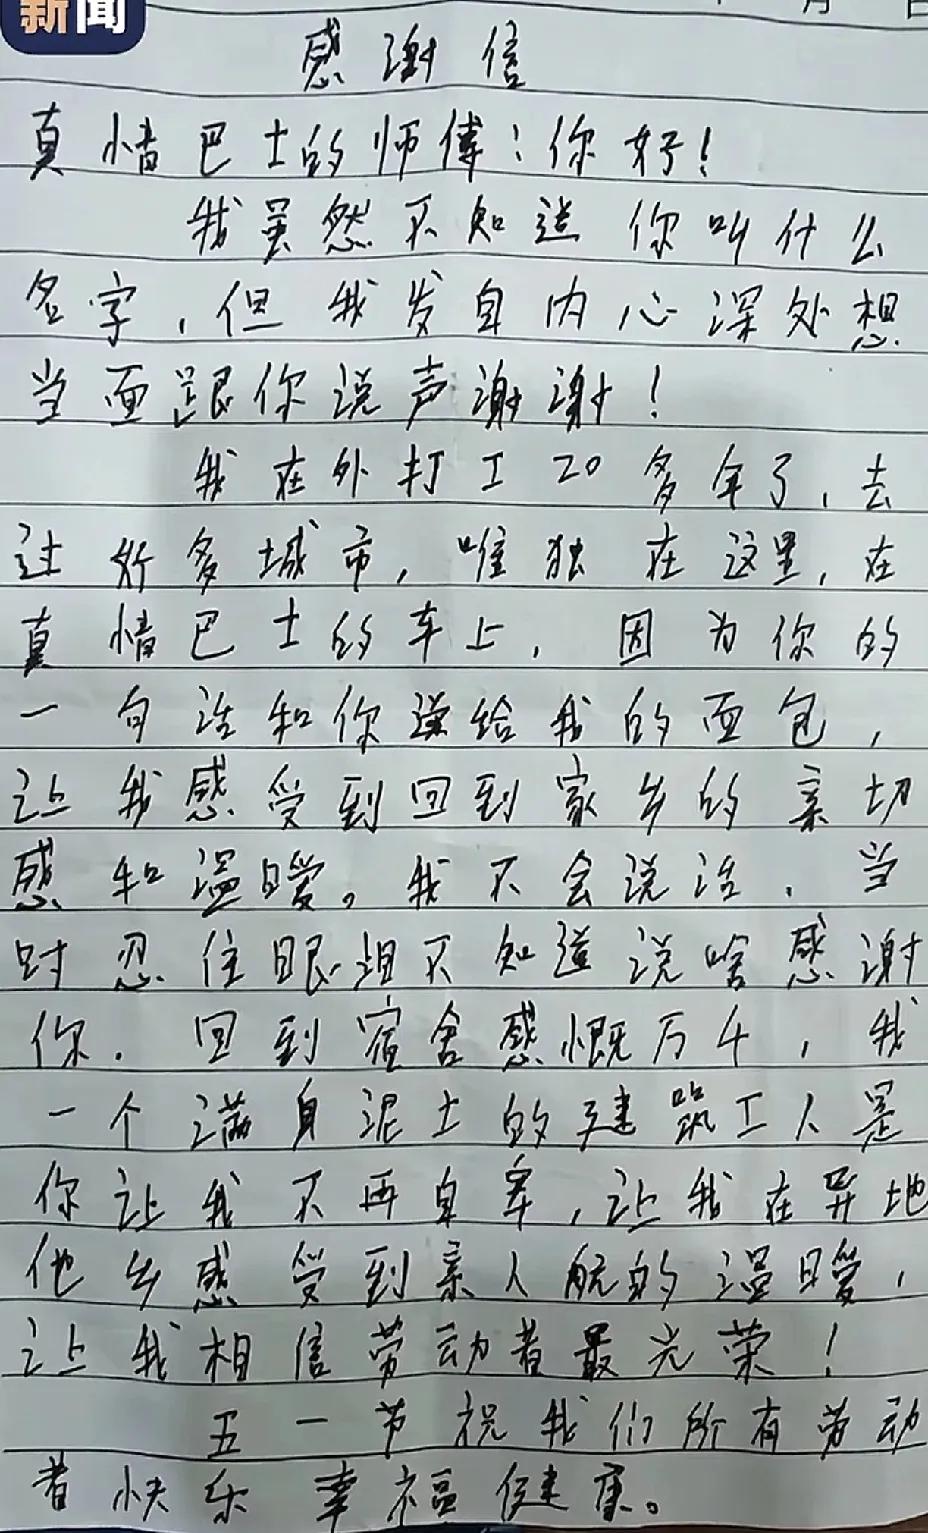 新闻
月 日
感谢信
真情巴士的师傅:你好!
我虽然不知道你叫什么
名字,但我发自内心深处想
当面跟你说声谢谢!
我在外打工20多年了,去
过好多城市,唯独在这里,在
真情巴士的车上,因为你的
一句话和你递给我的面包,
让我感受到回到家乡的亲切
感和温暖。我不会说话,当
时忍住眼泪不知道说啥感谢
你.回到宿舍感慨万千,我
一个满身泥土的建筑工人是
你让我不再自卑,让我在异地
他乡感受到亲人般的温暖,
让我相信劳动者最光荣!
五一节祝我们所有劳动
者快乐幸福健康。